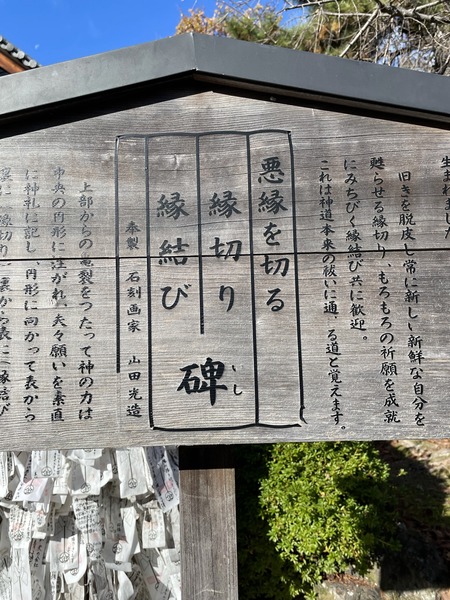 生まれました
旧きを脱皮し常に新しい新鮮な自分を
甦らせる縁切り、もろもろの祈願を成就
にみちびく縁結び共に歓迎。
これは神道本来の祓いに通る道と覚えます。
悪縁を切る
縁切り
縁結び
碑
いし
奉製 石刻画家 山田光造
上部からの亀裂をつたって神の力は
中央の円形に注がれ、夫々願いを素直
に神札に記し、円形に向かって表から
縁切り 裏から表に 縁結び